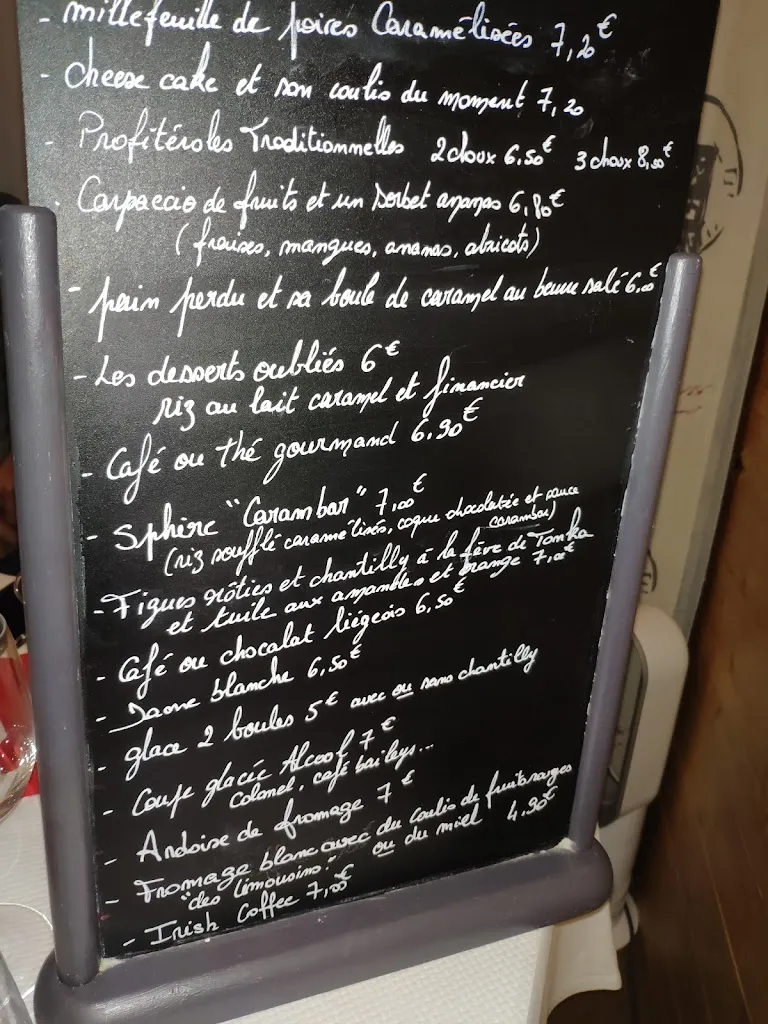 - millefeuille de poires Caramélisées 7,20€
- cheese cake et son coulis du moment 7,20
- Profitéroles Traditionnelles 2 choux 6.50€ 3 choux 8,50€
- Carpaccio de fruits et un sorbet ananas 6,80€
(fraises, mangues, ananas, abricots)
- pain perdu et sa boule de caramel au beurre salé 6.00€
- Les desserts oubliés 6€
riz au lait caramel et financier
- Café ou thé gourmand 6.90€
- Sphère "Carambar" 7,00€
(riz soufflé caramélisés, coque chocolatée et sauce
carambar)
- Figues rôties et chantilly à la fève de Tonka
et tuile aux amandes et orange 7,00€
- Café ou chocolat liégeois 6,50€
- Dame blanche 6,50€
- glace 2 boules 5€ avec ou sans chantilly
- Coupe glacée Alcool 7€
Colonel, café baileys...
- Ardoise de fromage 7€
- Fromage blanc avec du coulis de fruits rouges
"des Limousins" ou du miel 4,90€
- Irish Coffee 7,00€